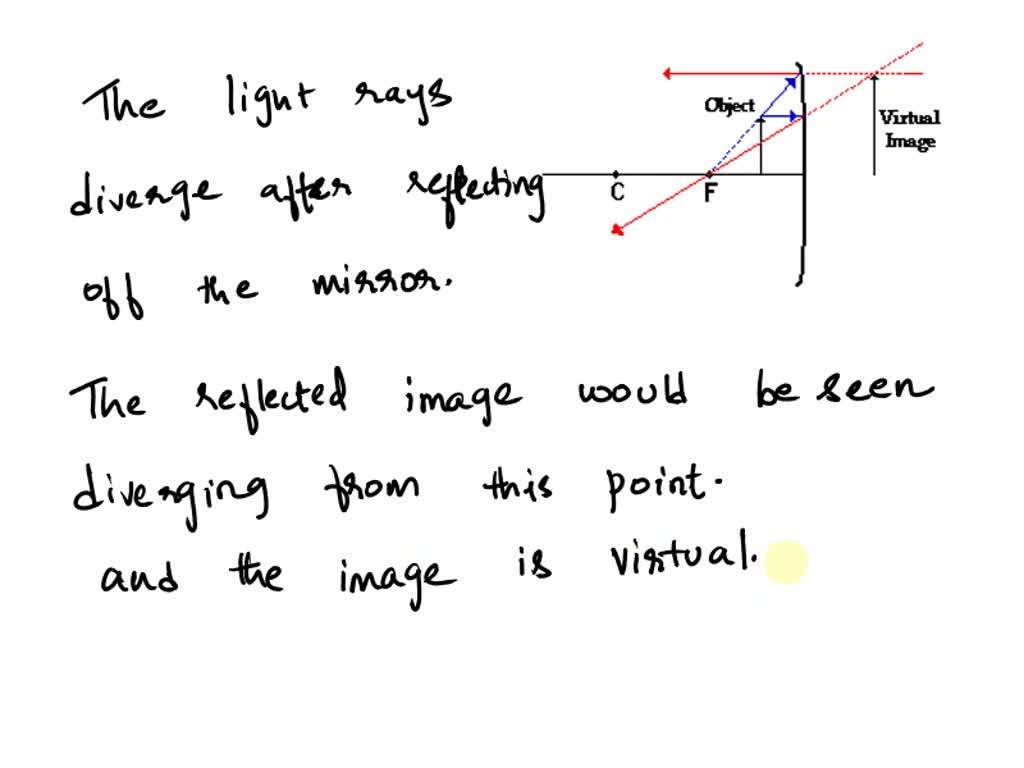 The light rays
diverge after reflecting
off the mirror.
Object
Virtual
Image
C
F
The reflected image would be seen
diverging from this point.
and the image is virtual.